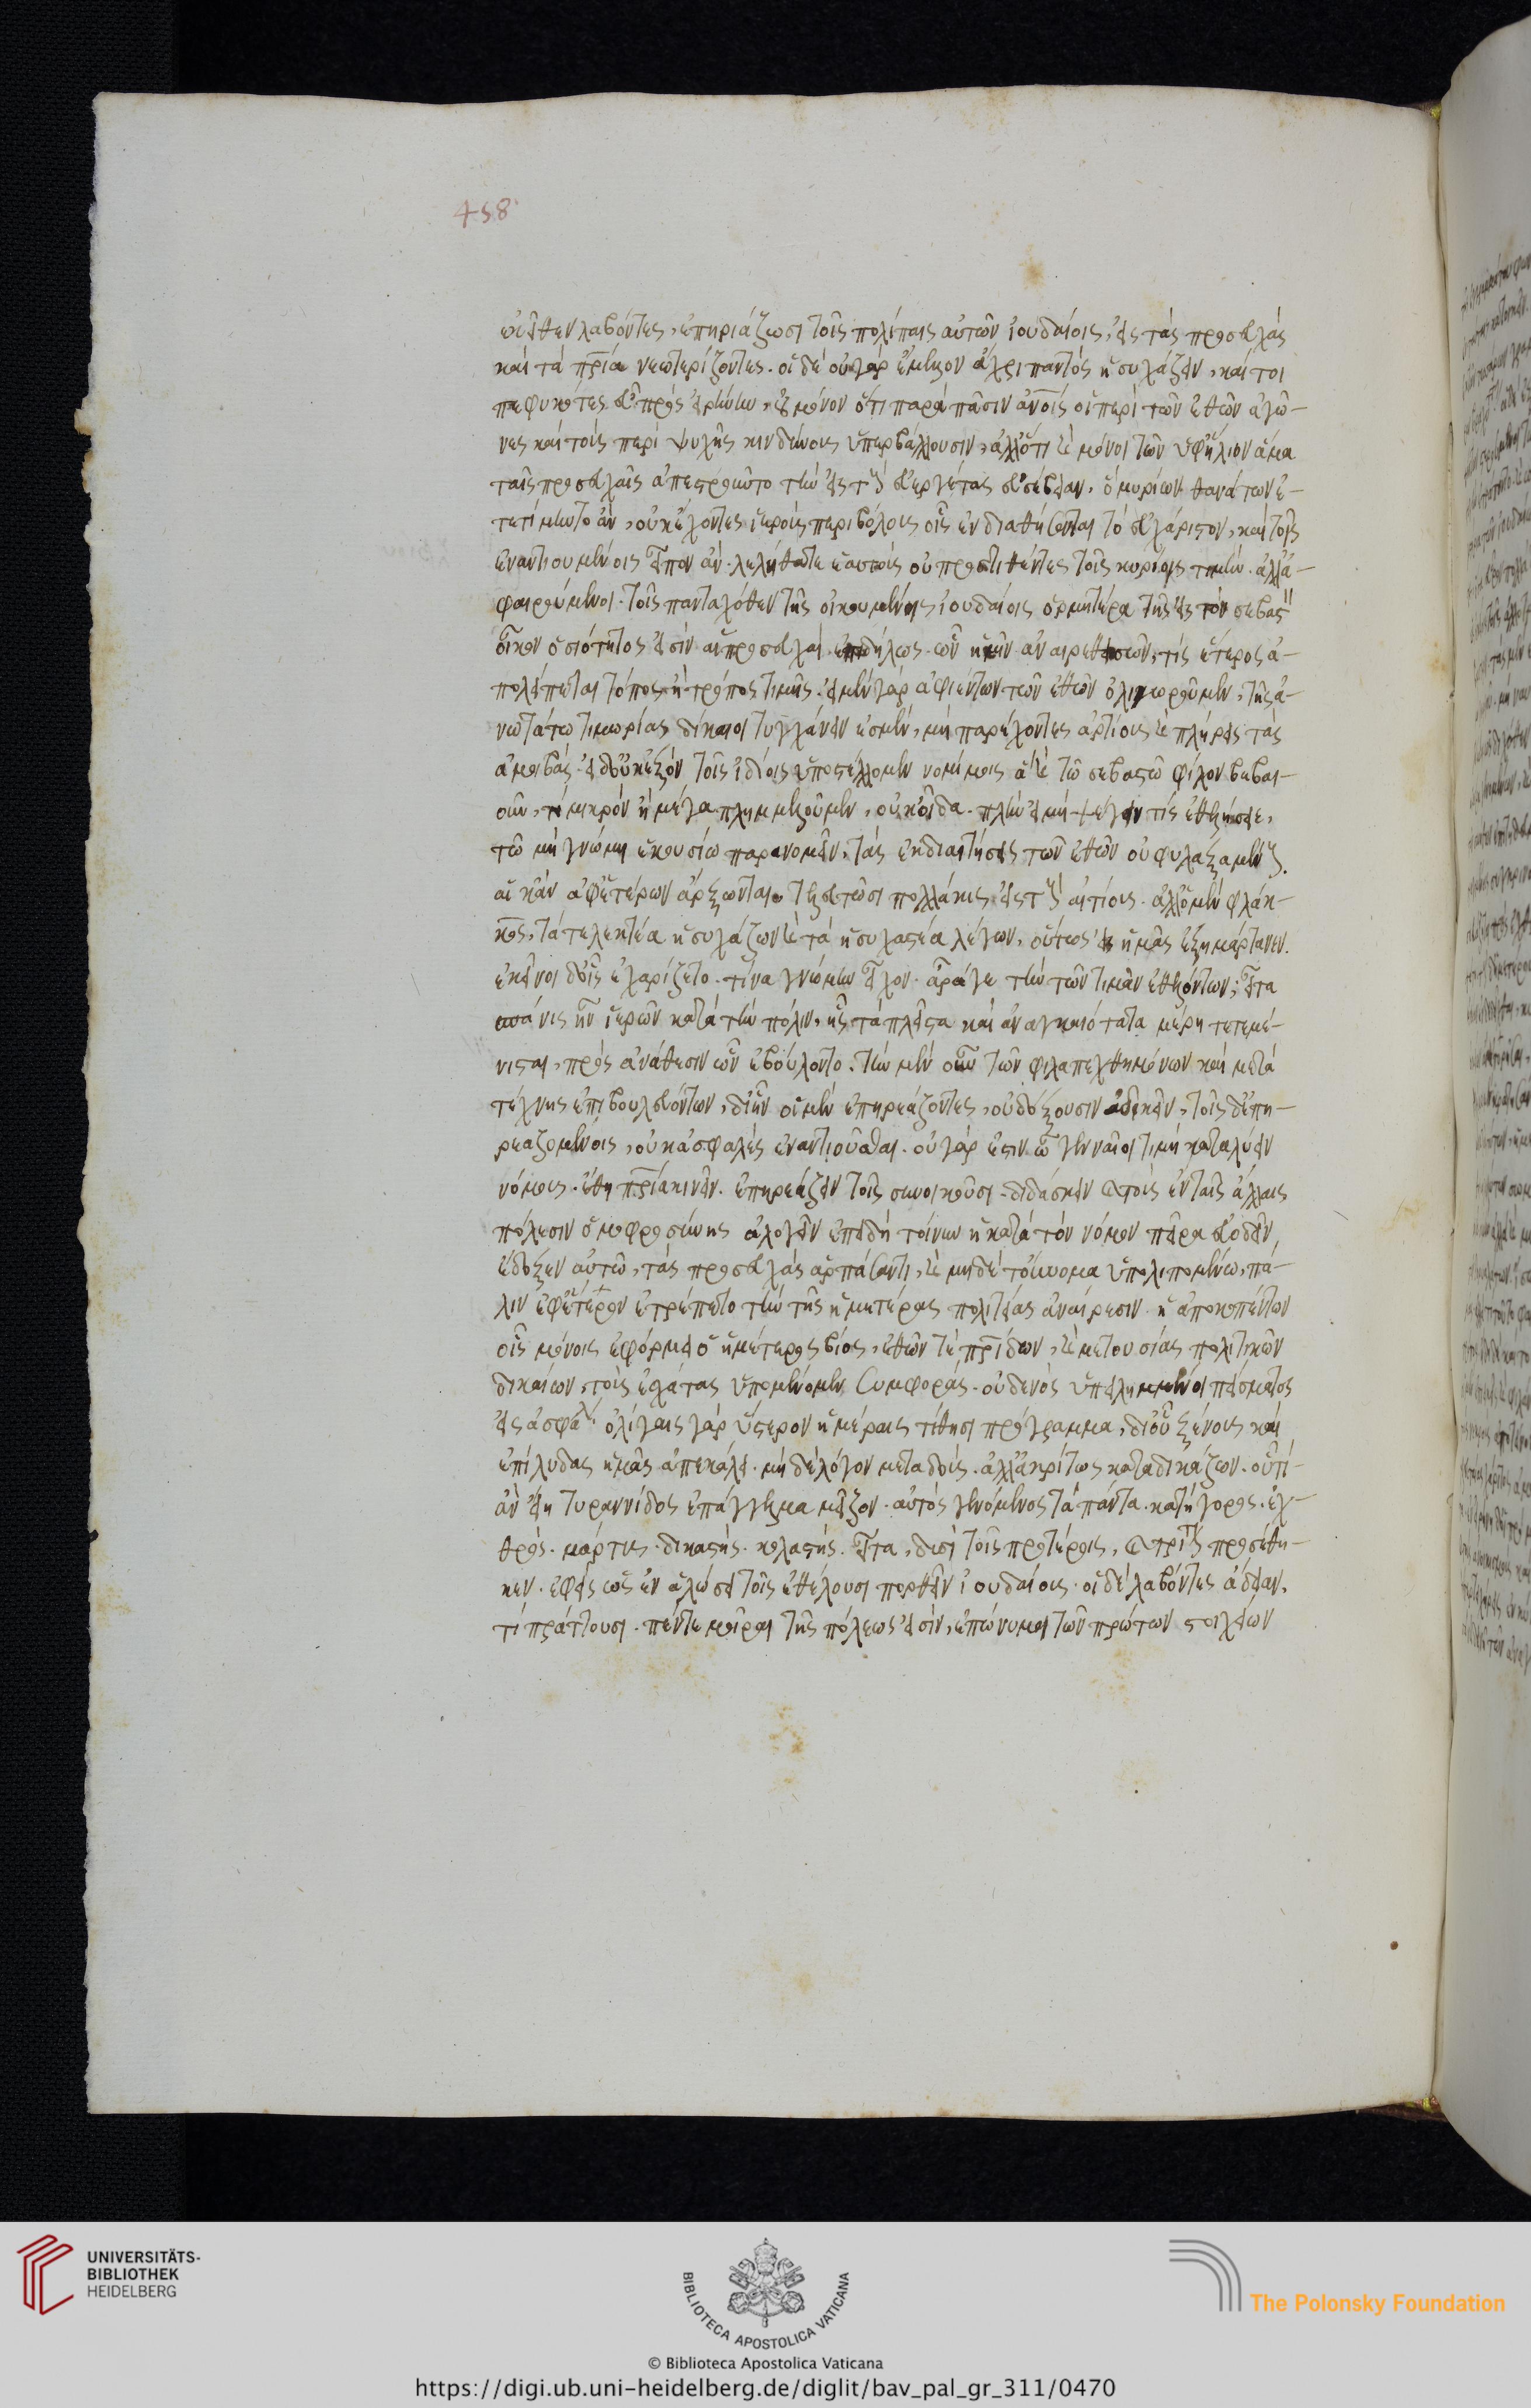 ἐκεῖθεν λαβόντες, ἐπηριάζωσι τοῖς πολίταις αὐτῶν ἰουδαίοις, εἰς τὰς προσευχὰς
καὶ τὰ πρια νεωτερίζοντες. οἱ δὲ οὐ γὰρ ἔμελλον ἄχρι παντὸς ἡσυχάζειν, καί τοι
πεφυκότες εὖ πρὸς εἰρήνην, οὐ μόνον ὅτι παρὰ πᾶσιν ἀνοις οἱ περὶ τῶν ἐθῶν ἀγῶ-
νες καὶ τοὺς περὶ ψυχῆς κινδύνους ὑπερβάλλουσιν, ἀλλ' ὅτι καὶ μόνοι τῶν ὑφ' ἥλιον ἅμα
ταῖς προσευχαῖς ἀπεστεροῦντο τὴν εἰς τοὺς εὐεργέτας εὐσέβειαν. ὃ μυρίων θανάτων ἐ-
τετίμηντο ἂν, οὐκ ἔχοντες ἱεροὺς περιβόλους οἷς ἐνδιαθήσονται τὸ εὐχάριστον, καὶ τοῖς
ἐναντιουμένοις εἶπον ἄν. λελήθατε ἑαυτοὺς οὐ προστιθέντες τοῖς κυρίοις τιμὴν. ἀλλ' ἀ-
φαιρούμενοι. τοῖς πανταχόθεν τῆς οἰκουμένης ἰουδαίοις ὁρμητήρια τῆς εἰς τὸν σεβαστ
οἶκον ὁσιότητος εἰσὶν αἱ προσευχαὶ ἐπιδήλως. ὧν ἡμῖν ἀναιρεθεισῶν, τίς ἕτερος ἀ-
πολείπεται τόπος ἢ τρόπος τιμῆς. εἰ μὲν γὰρ ἀφιέντων τῶν ἐθῶν ὀλιγωροῦμεν, τῆς ἀ-
νωτάτω τιμωρίας δίκαιοι τυγχάνειν ἐσμὲν, μὴ παρέχοντες ἀρτίους καὶ πλήρεις τὰς
ἀμοιβάς. εἰ δ' οὐκ ἐξὸν τοῖς ἰδίοις ὑποστέλλομεν νομίμοις ἃ καὶ τῷ σεβαστῷ φίλον βεβαι-
οῦν, τί μικρὸν ἢ μέγα πλημμελοῦμεν, οὐκ οἶδα. πλὴν εἰ μὴ ψέγειν τίς ἐθελήσειε,
τῷ μὴ γνώμη ἑκουσίω παρανομεῖν, τὰς ἐκδιαιτήσεις τῶν ἐθῶν οὐ φυλαξαμένους.
αἳ κἂν ἀφ' ἑτέρων ἄρξωνται, τελευτῶσι πολλάκις εἰς τοὺς αἰτίους. ἀλλ' ὁ μὲν φλάκ-
κος, τὰ τελεκτέα ἡσυχάζων καὶ τὰ ἡσυχαστέα λέγων, οὕτως εἰς ἡμᾶς ἐξημάρτανεν.
ἐκεῖνοι δ' οἷς ἐχαρίζετο. τίνα γνώμην εἶχον. ἆρά γε τὴν τῶν τιμᾶν ἐθελόντων; εἶτα
σπάνις ἦν ἱερῶν κατὰ τὴν πόλιν, ἧς τὰ πλεῖστα καὶ ἀναγκαιότατα μέρη τετεμέ-
νισται, πρὸς ἀνάθεσιν ὧν ἐβούλοντο. τὴν μὲν οὖν τῶν φιλαπεχθημόνων καὶ μετὰ
τέχνης ἐπιβουλευόντων, δι' ἣν οἱ μὲν ἐπηρεάζοντες, οὐ δόξουσιν ἀδικεῖν, τοῖς δ' ἐπη-
ρεαζομένοις, οὐκ ἀσφαλὲς ἐναντιοῦσθαι. οὐ γάρ ἐστιν ὦ γενναῖοι τιμὴ καταλύειν
νόμους. ἔθη πρια κινεῖν. ἐπηρεάζειν τοῖς συνοικοῦσι. διδάσκειν αὐτοὺς ἐν ταῖς ἄλλαις
πόλεσιν ὁμοφροσύνης ἀλογεῖν ἐπειδὴ τοίνυν ἡ κατὰ τὸν νόμον πεῖρα εὐοδεῖν,
ἔδοξεν αὐτῷ, τὰς προσευχὰς ἁρπάσαντι, καὶ μηδὲ τοὔνομα ὑπολιπομένω, πά-
λιν ἐφ' ἕτερον ἐτρέπετο τὴν τῆς ἡμετέρας πολιτείας ἀναίρεσιν. ἢ ἀποκοπέντων
οἷς μόνοις ἐφόρμει ὁ ἡμέτερος βίος, ἐθῶν τὲ πρίδων, καὶ μετουσίας πολιτικῶν
δικαίων, τοὺς ἐσχάτας ὑπομένομεν συμφοράς. οὐδενὸς ὑπειλημμένοι πείσματος
εἰς ἀσφάλ ὀλίγαις γὰρ ὕστερον ἡμέραις τίθησι πρόγραμμα, δι' οὗ ξένους καὶ
ἐπίλυδας ἡμᾶς ἀπεκάλει. μὴ δὲ λόγον μεταδοὺς. ἀλλ' ἀκρίτως καταδικάζων. οὗ τί
ἂν εἴη τυραννίδος ἐπάγγελμα μεῖζον. αὐτὸς γενόμενος τὰ πάντα. κατήγορος. ἐχ-
θρός. μάρτυς. δικαστής. κολαστής. εἶτα, δυσὶ τοῖς προτέροις, καὶ τρίτον προσέθη-
κεν. ἐφεὶς ὡς ἐν ἁλώσει τοῖς ἐθέλουσι πορθεῖν ἰουδαίους. οἱ δὲ λαβόντες ἄδειαν,
τί πράττουσι. πέντε μοῖραι τῆς πόλεως εἰσὶν, ἐπώνυμοι τῶν πρώτων στοιχείων
458
UNIVERSITÄTS-
BIBLIOTHEK
HEIDELBERG
BIBLIOTECA APOSTOLICA VATICANA
The Polonsky Foundation
© Biblioteca Apostolica Vaticana
https://digi.ub.uni-heidelberg.de/diglit/bav_pal_gr_311/0470